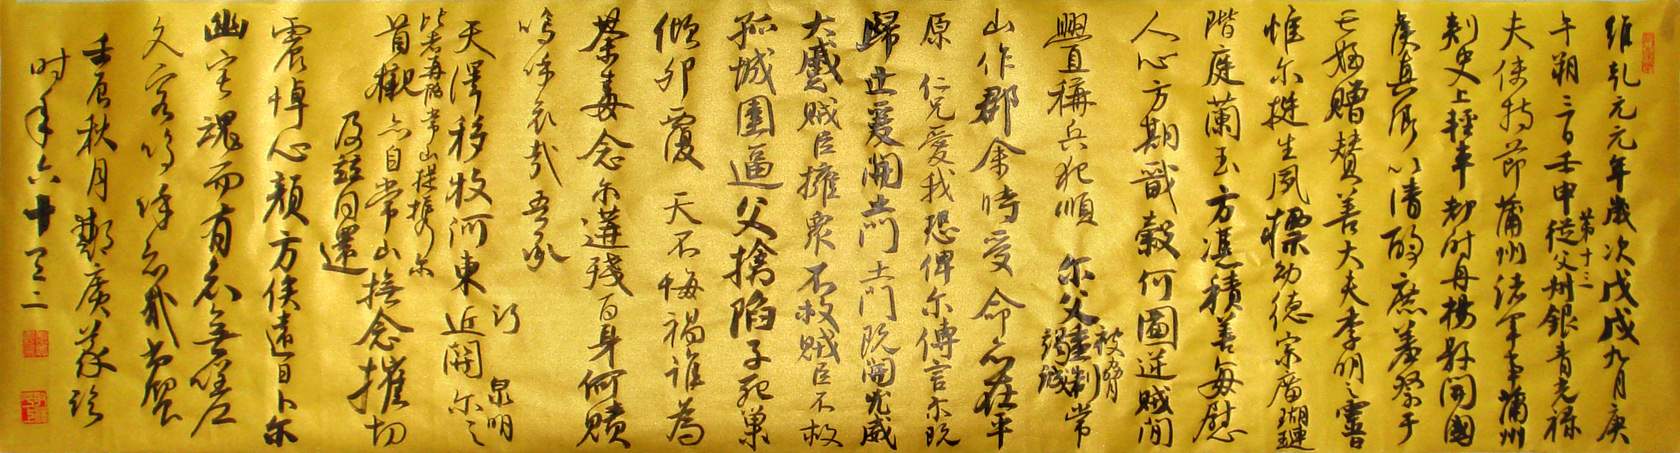 維乾元元年歲次戊戌九月庚
午朔三日壬申第十三從父州銀青光祿
夫使持節蒲州諸軍事蒲州
刺史上輕車都尉丹楊縣開國
侯真卿以清酌庶羞祭于
亡姪贈贊善大夫季明之靈曰
惟爾挺生夙標幼德宗廟瑚璉
階庭蘭玉方憑積善每慰
人心方期戩穀何圖逆賊閒
釁直稱兵犯順爾父竭誠被脅制常
山作郡余時受命亦在平
原仁兄愛我恐俾爾傳言爾既
歸止爰開土門土門既開兇威
大蹙賊臣擁衆不救賊臣不救
孤城圍逼父擒陷子死巢
傾卵覆天不悔禍誰為
荼毒念爾遘殘百身何贖
嗚呼哀哉吾承
泉明
行
天澤移牧河東近開爾之
比者再陷常山提攜爾
首櫬亦自常山撫念摧切
及茲同還
震悼心顏方俟遠日卜爾
幽宅魂而有知無嗟
久客嗚呼哀哉尚饗
壬辰秋月鄭廣義臨
时年六十二